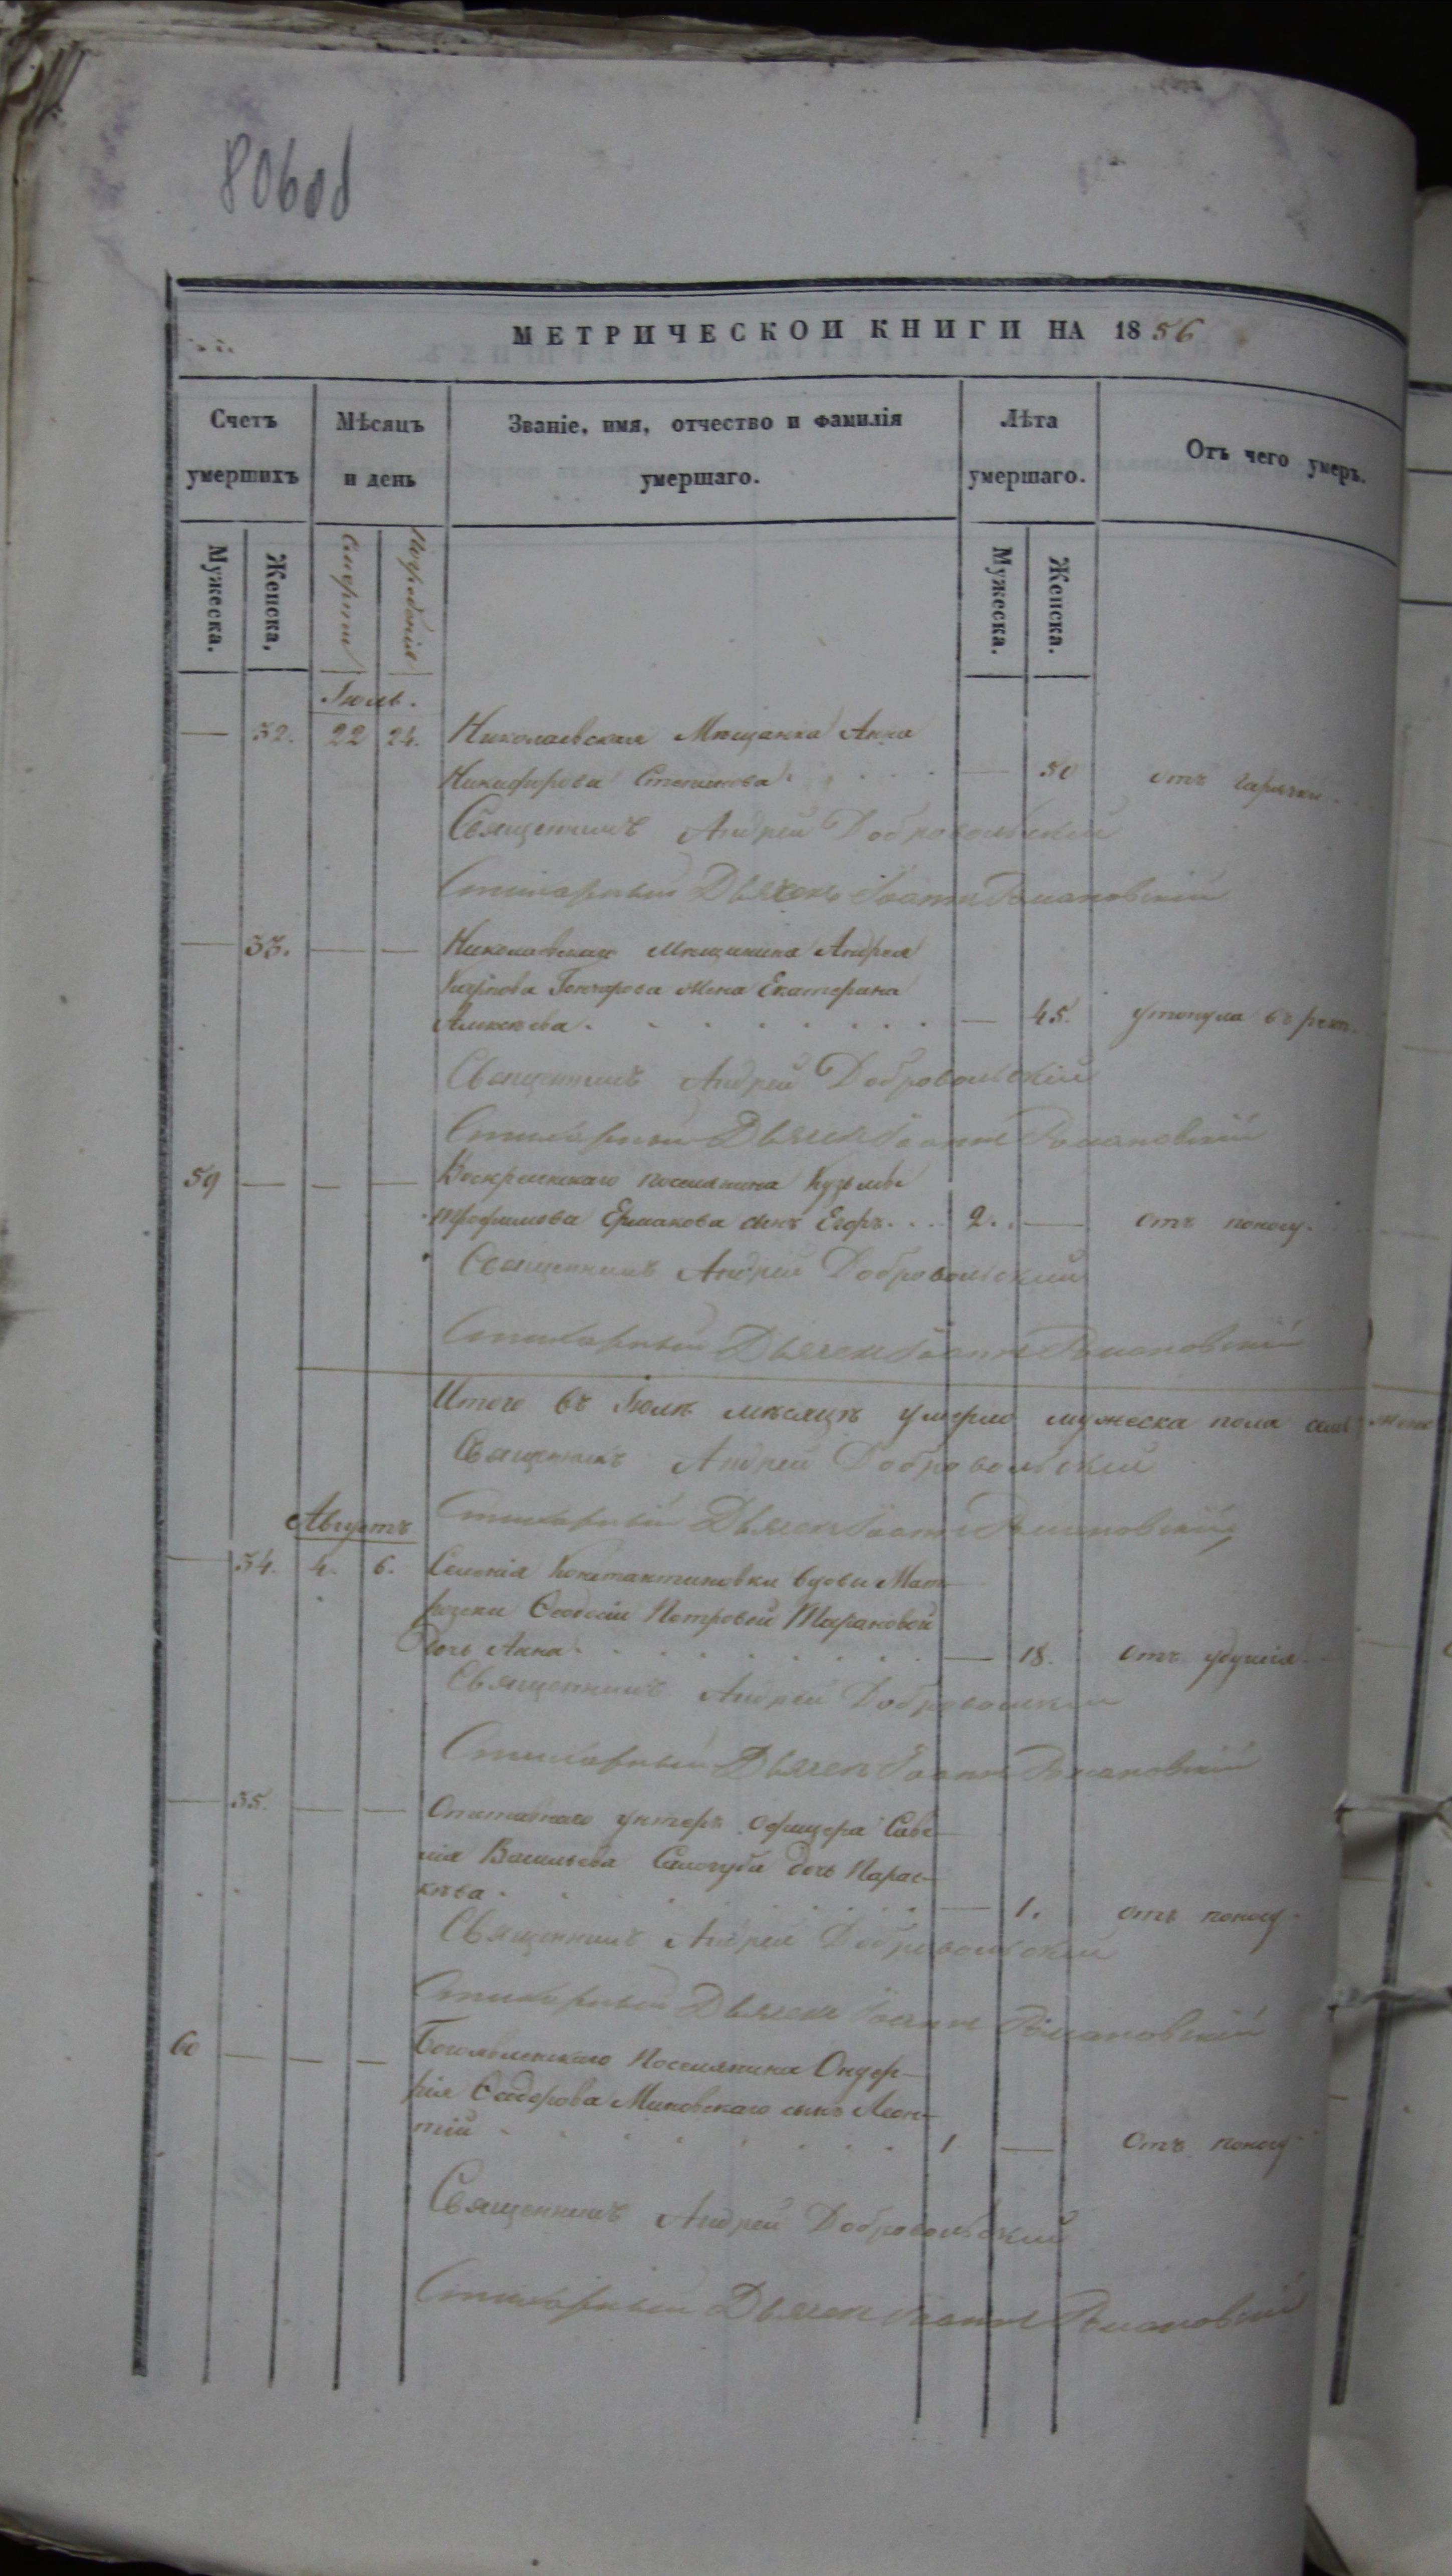 806об
МЕТРИЧЕСКОИ КНИГИ НА 1856
Счетъ умершихъ
Мѣсяцъ и день
Званіе, имя, отчество и фамилія умершаго.
Лѣта умершаго.
Отъ чего умеръ.
Мужеска.
Женска,
Смерти
Погребенія
Мужеска.
Женска.
Іюль.
32. 22 24. Николаевская Мѣщанка Анна
Никифорова Степанова. 50 отъ горячки.
Священникъ Андрей Добровольскій
Стихарный Дьячекъ Іоаннъ Романовскій
33. Николаевскаго Мѣщанина Андрея
Карпова Гончарова Жена Екатерина
Алексѣева. 45. утонула въ рекѣ.
Священникъ Андрей Добровольскій
Стихарный Дьячекъ Іоаннъ Романовскій
59 Воскресенскаго поселянина Кузьмы
Трофимова Ермакова сынъ Егоръ. 2. отъ поносу.
Священникъ Андрей Добровольскій
Стихарный Дьячекъ Іоаннъ Романовскій
Итого въ Іюлѣ мѣсяцѣ умерло мужеска пола семь
Священникъ Андрей Добровольскій
Августъ Стихарный Дьячекъ Іоаннъ Романовскій
34. 4. 6. Селенія Константиновки вдовы Мат-
роски Ѳеодосіи Петровой Тарановой
дочь Анна. 18. отъ удушія.
Священникъ Андрей Добровольскій
Стихарный Дьячекъ Іоаннъ Романовскій
35. Отставнаго унтеръ Офицера Саве-
лія Васильева Самогуба дочь Парас-
кева. 1. отъ поносу.
Священникъ Андрей Добровольскій
Стихарный Дьячекъ Іоаннъ Романовскій
60 Богоявленскаго Поселянина
Ѳеодорова сынъ Леон-
тій 1 отъ поносу
Священникъ Андрей Добровольскій
Стихарный Дьячекъ Іоаннъ Романовскій